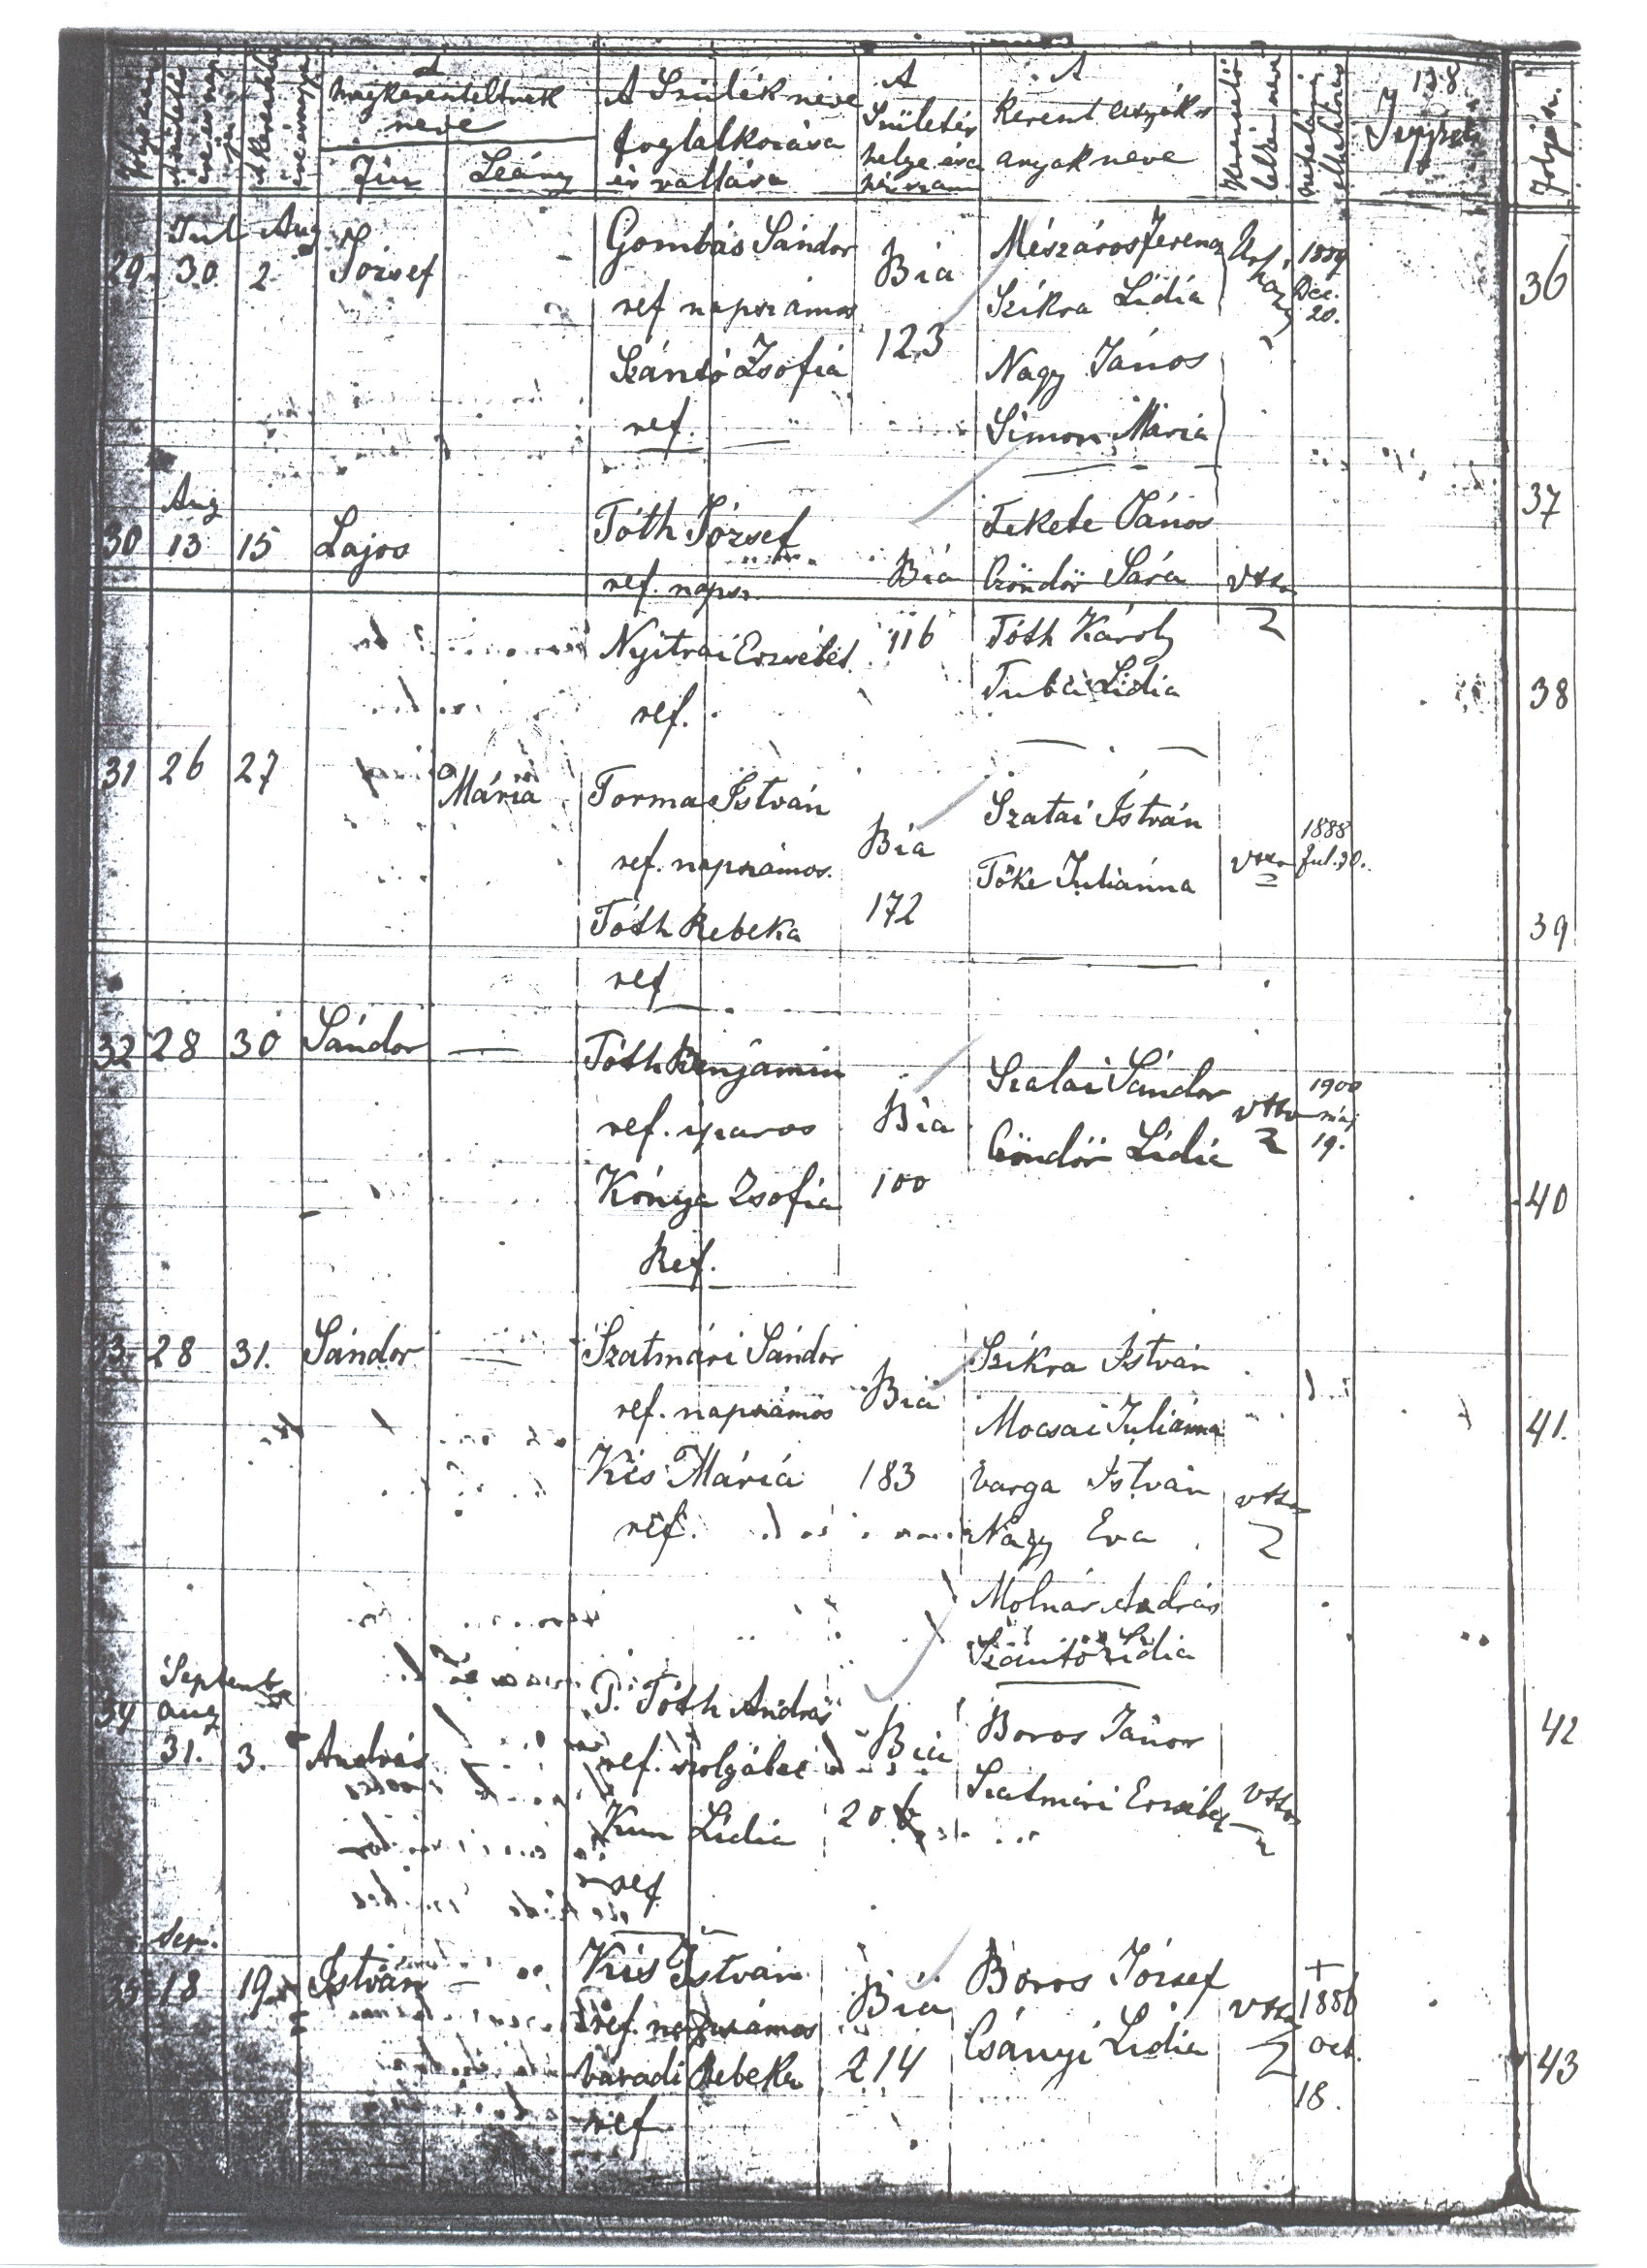 A
megkereszteltnek
neve
Fiu
Leány
A Szülék neve
foglalkozása
és vallása
A
Születés
helye és a
házszám
A
kereszt atyák s
anyák neve
138
Jegyzet
Folyó sz.
Jul Aug
29. 30. 2 József
Gombás Sándor
ref napszámos
Szántó Zsófia
ref.
Bia
123
Mészáros Ferencz
Szikra Lídia
Nagy János
Simon Mária
1889
Dec.
20.
36
Aug
30 13 15 Lajos
Tóth József
ref. naps.
Nyitrai Erzsébet
ref.
Bia
116
Fekete János
Göndör Sára
Tóth Károly
Tuba Lídia
37
38
31 26 27 Mária
Torma István
ref. napszámos.
Tóth Rebeka
ref
Bia
172
Szatai István
Tőke Juliánna
1888
Jul. 30.
39
32 28 30 Sándor —
Tóth Benjamin
ref. iparos
Kónya Zsófia
Ref.
Bia
100
Szalai Sándor
Göndör Lídia
1900
máj
19.
40
33 28 31. Sándor —
Szatmári Sándor
ref. napszámos
Kis Mária
ref.
Bia
183
Szikra István
Mocsai Juliánna
Varga István
Nagy Eva
Molnár András
Szántó Lidia
41.
Septemb
34 aug
31. 3. András
P. Tóth András
ref. szolgábei
Kun Lídia
ref
Bia
20
Boros János
Szatmári Erzsébet
42
Sep.
35 18 19 István —
Kis István
ref. napszámos
Váradi Rebeka
ref
Bia
214
Boros József
Csányi Lídia
+
1886
oct.
18.
43